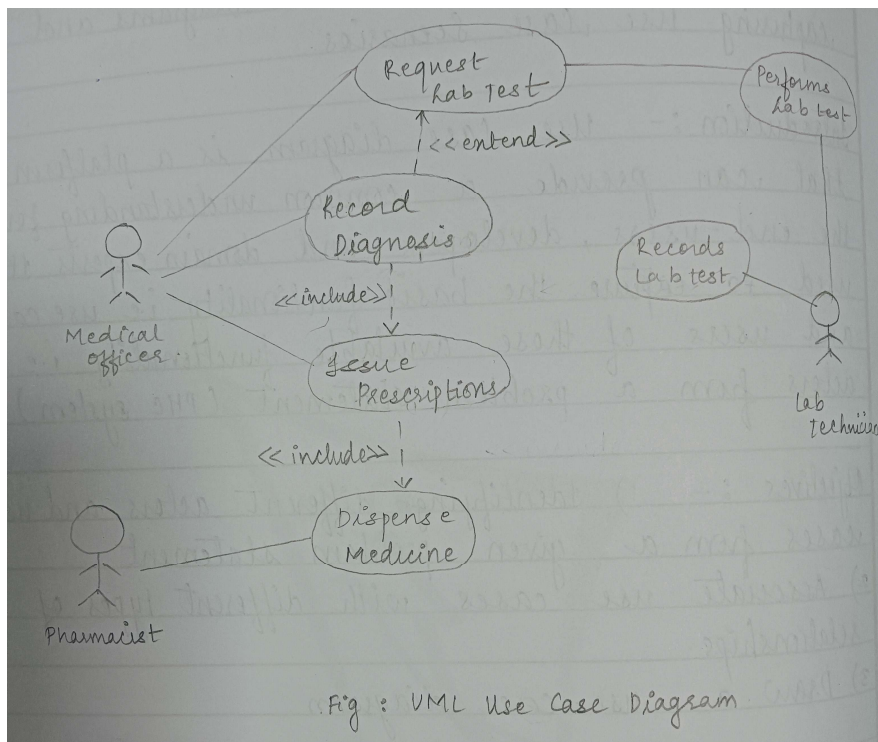 Request
Lab Test
Performs
Lab test
<<entend>>
Record
Diagnosis
Records
Lab test
<<include>>
Medical
offices
Issue
Prescriptions
Lab
Technician
<<include>>
Dispense
Medicine
Pharmacist
Fig : UML Use Case Diagram